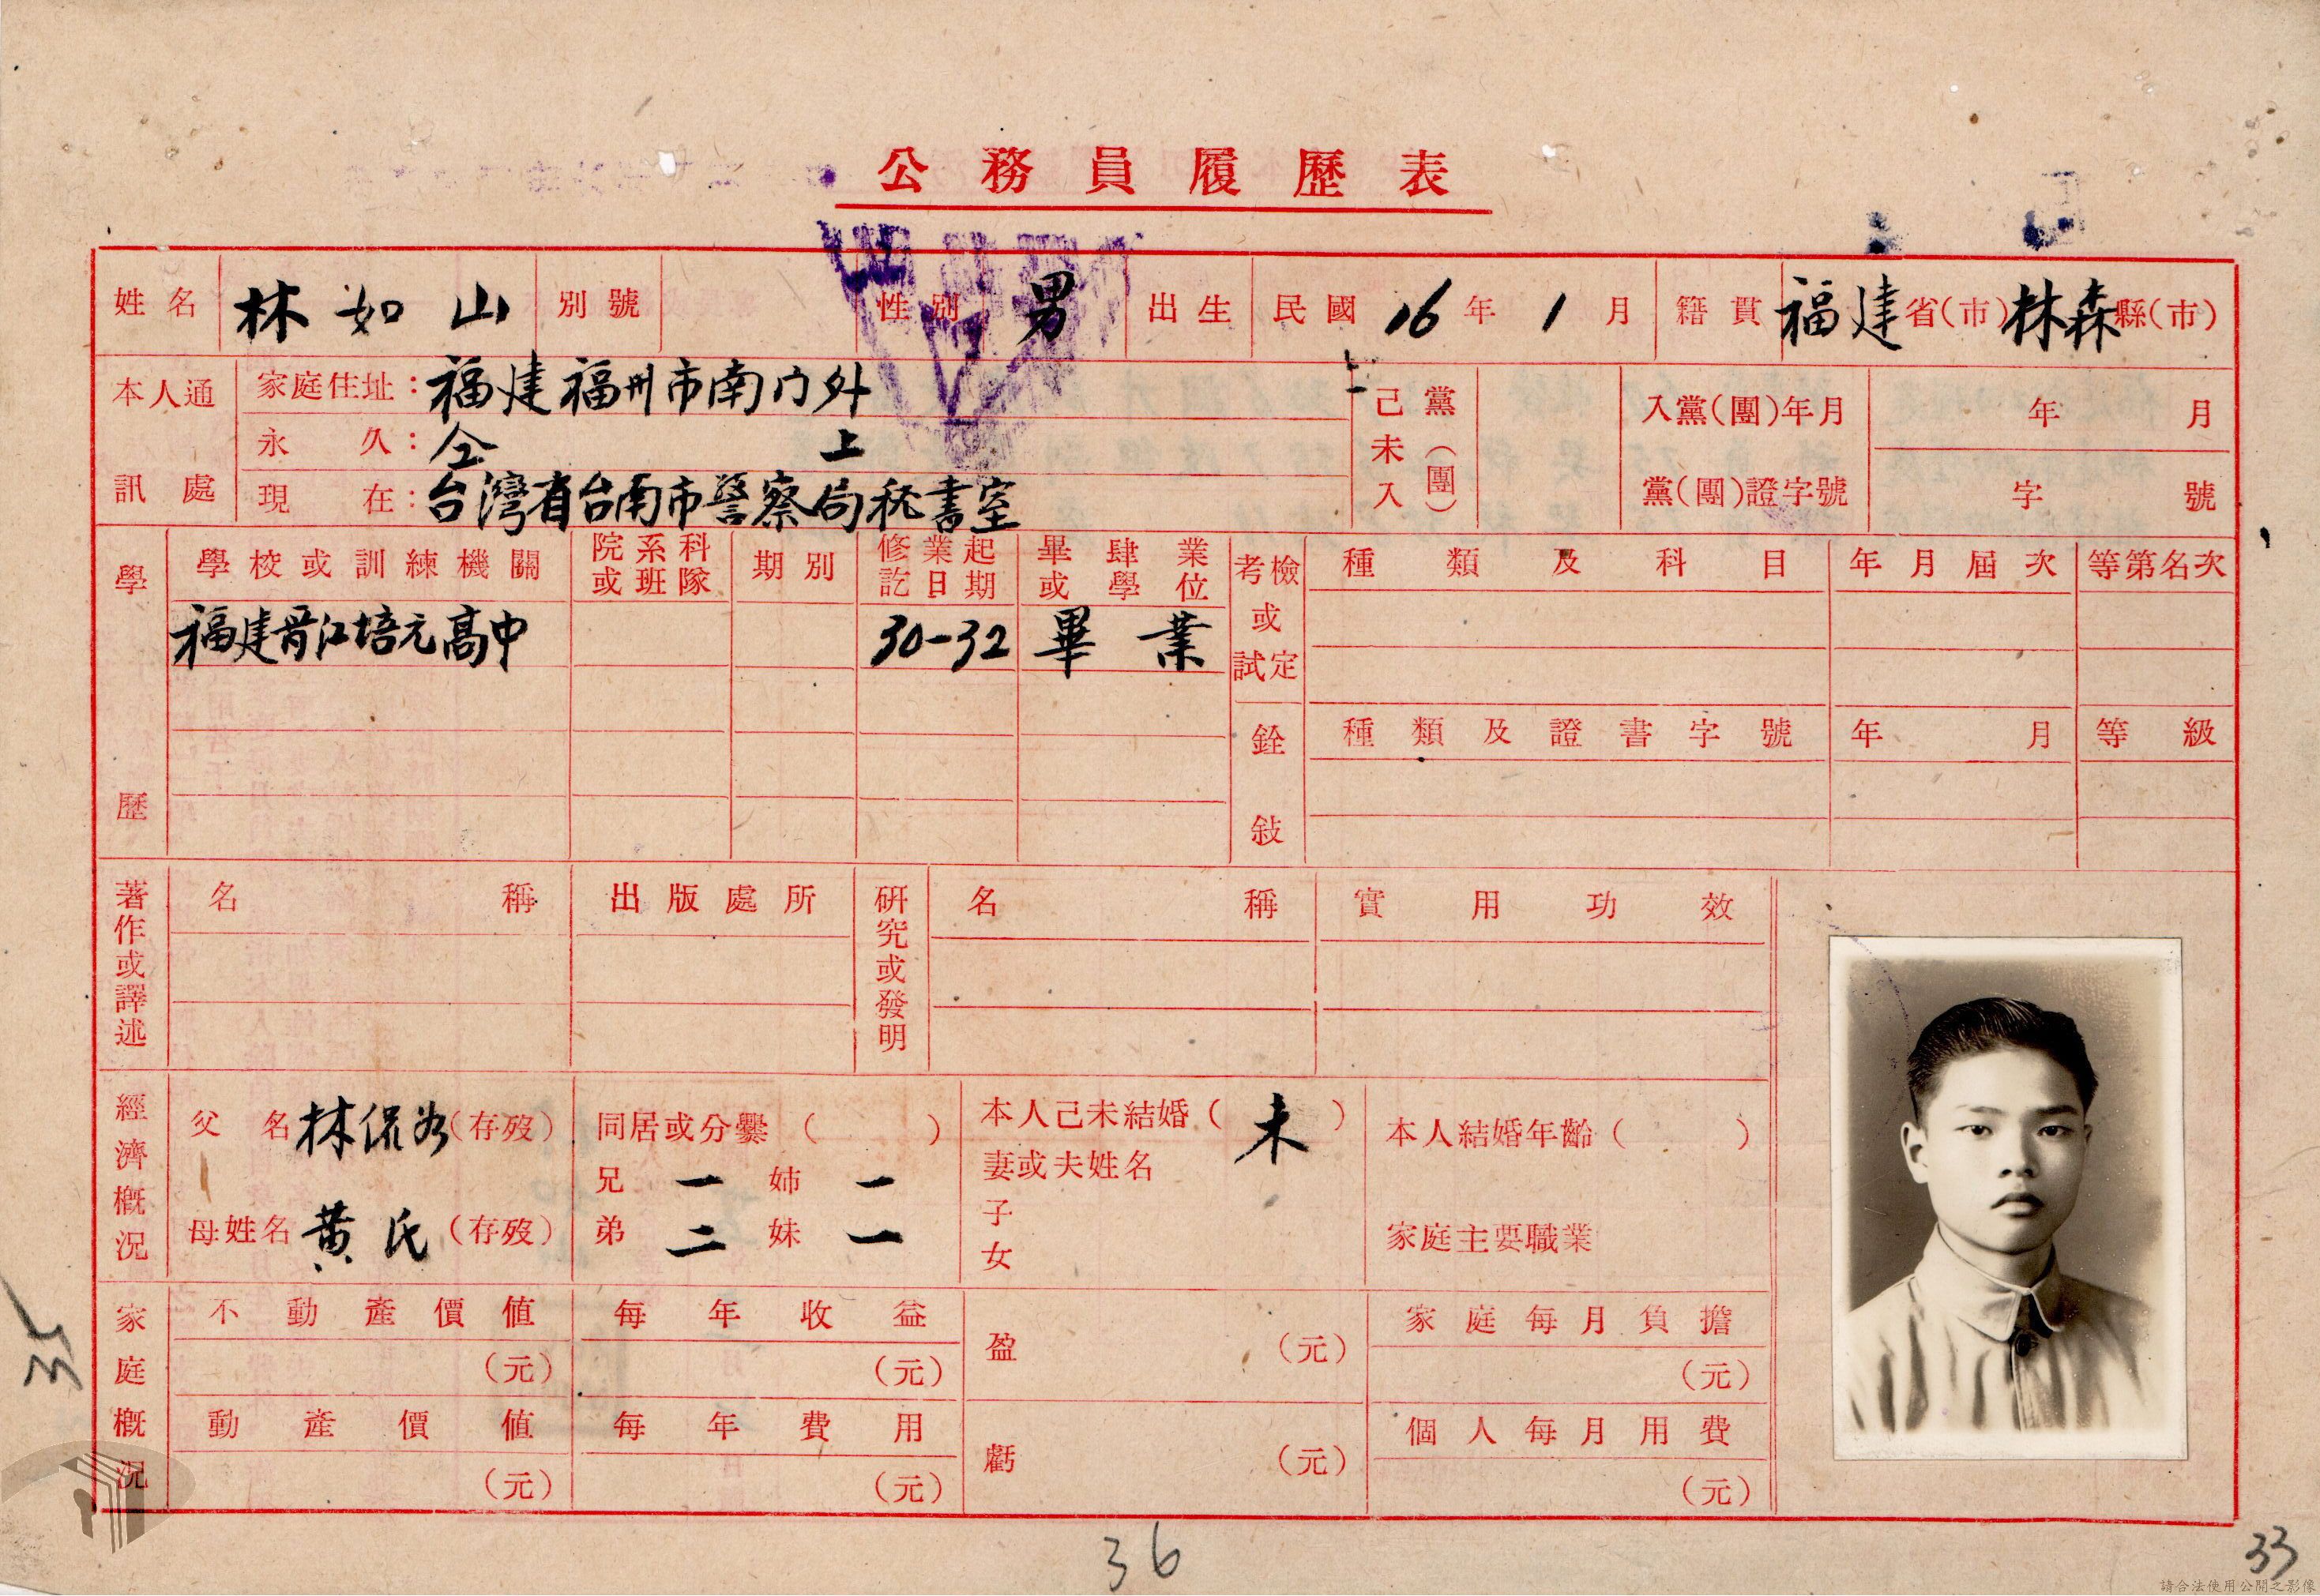 公務員履歷表
姓名 林如山 別號 性別 男 出生 民國16年1月 籍貫 福建省(市)林森縣(市)
本人通訊處
家庭住址：福建福州市南门外
永久：仝上
現在：台灣省台南市警察局秘書室
己未入黨(團)
入黨(團)年月 年 月
黨(團)證字號 字 號
學歷
學校或訓練機關 院系科或班隊 期別 修業起訖日期 畢肄業或學位
福建晋江培元高中 30-32 畢業
考檢或試定 種類及科目 年月屆次 等第名次
銓敍 種類及證書字號 年月 等級
著作或譯述 名稱 出版處所
研究或發明 名稱 實用功效
經濟概況
父名 林侃 (存歿) 同居或分爨( )
母姓名 黄氏 (存歿)
兄 一 姉 一
弟 二 妹 一
本人己未結婚(未)
妻或夫姓名
子
女
本人結婚年齡( )
家庭主要職業
家庭概況
不動產價值 (元) 每年收益 (元) 盈 (元) 家庭每月負擔 (元)
動產價值 (元) 每年費用 (元) 虧 (元) 個人每月用費 (元)
35
36
33
請合法使用公開之影像